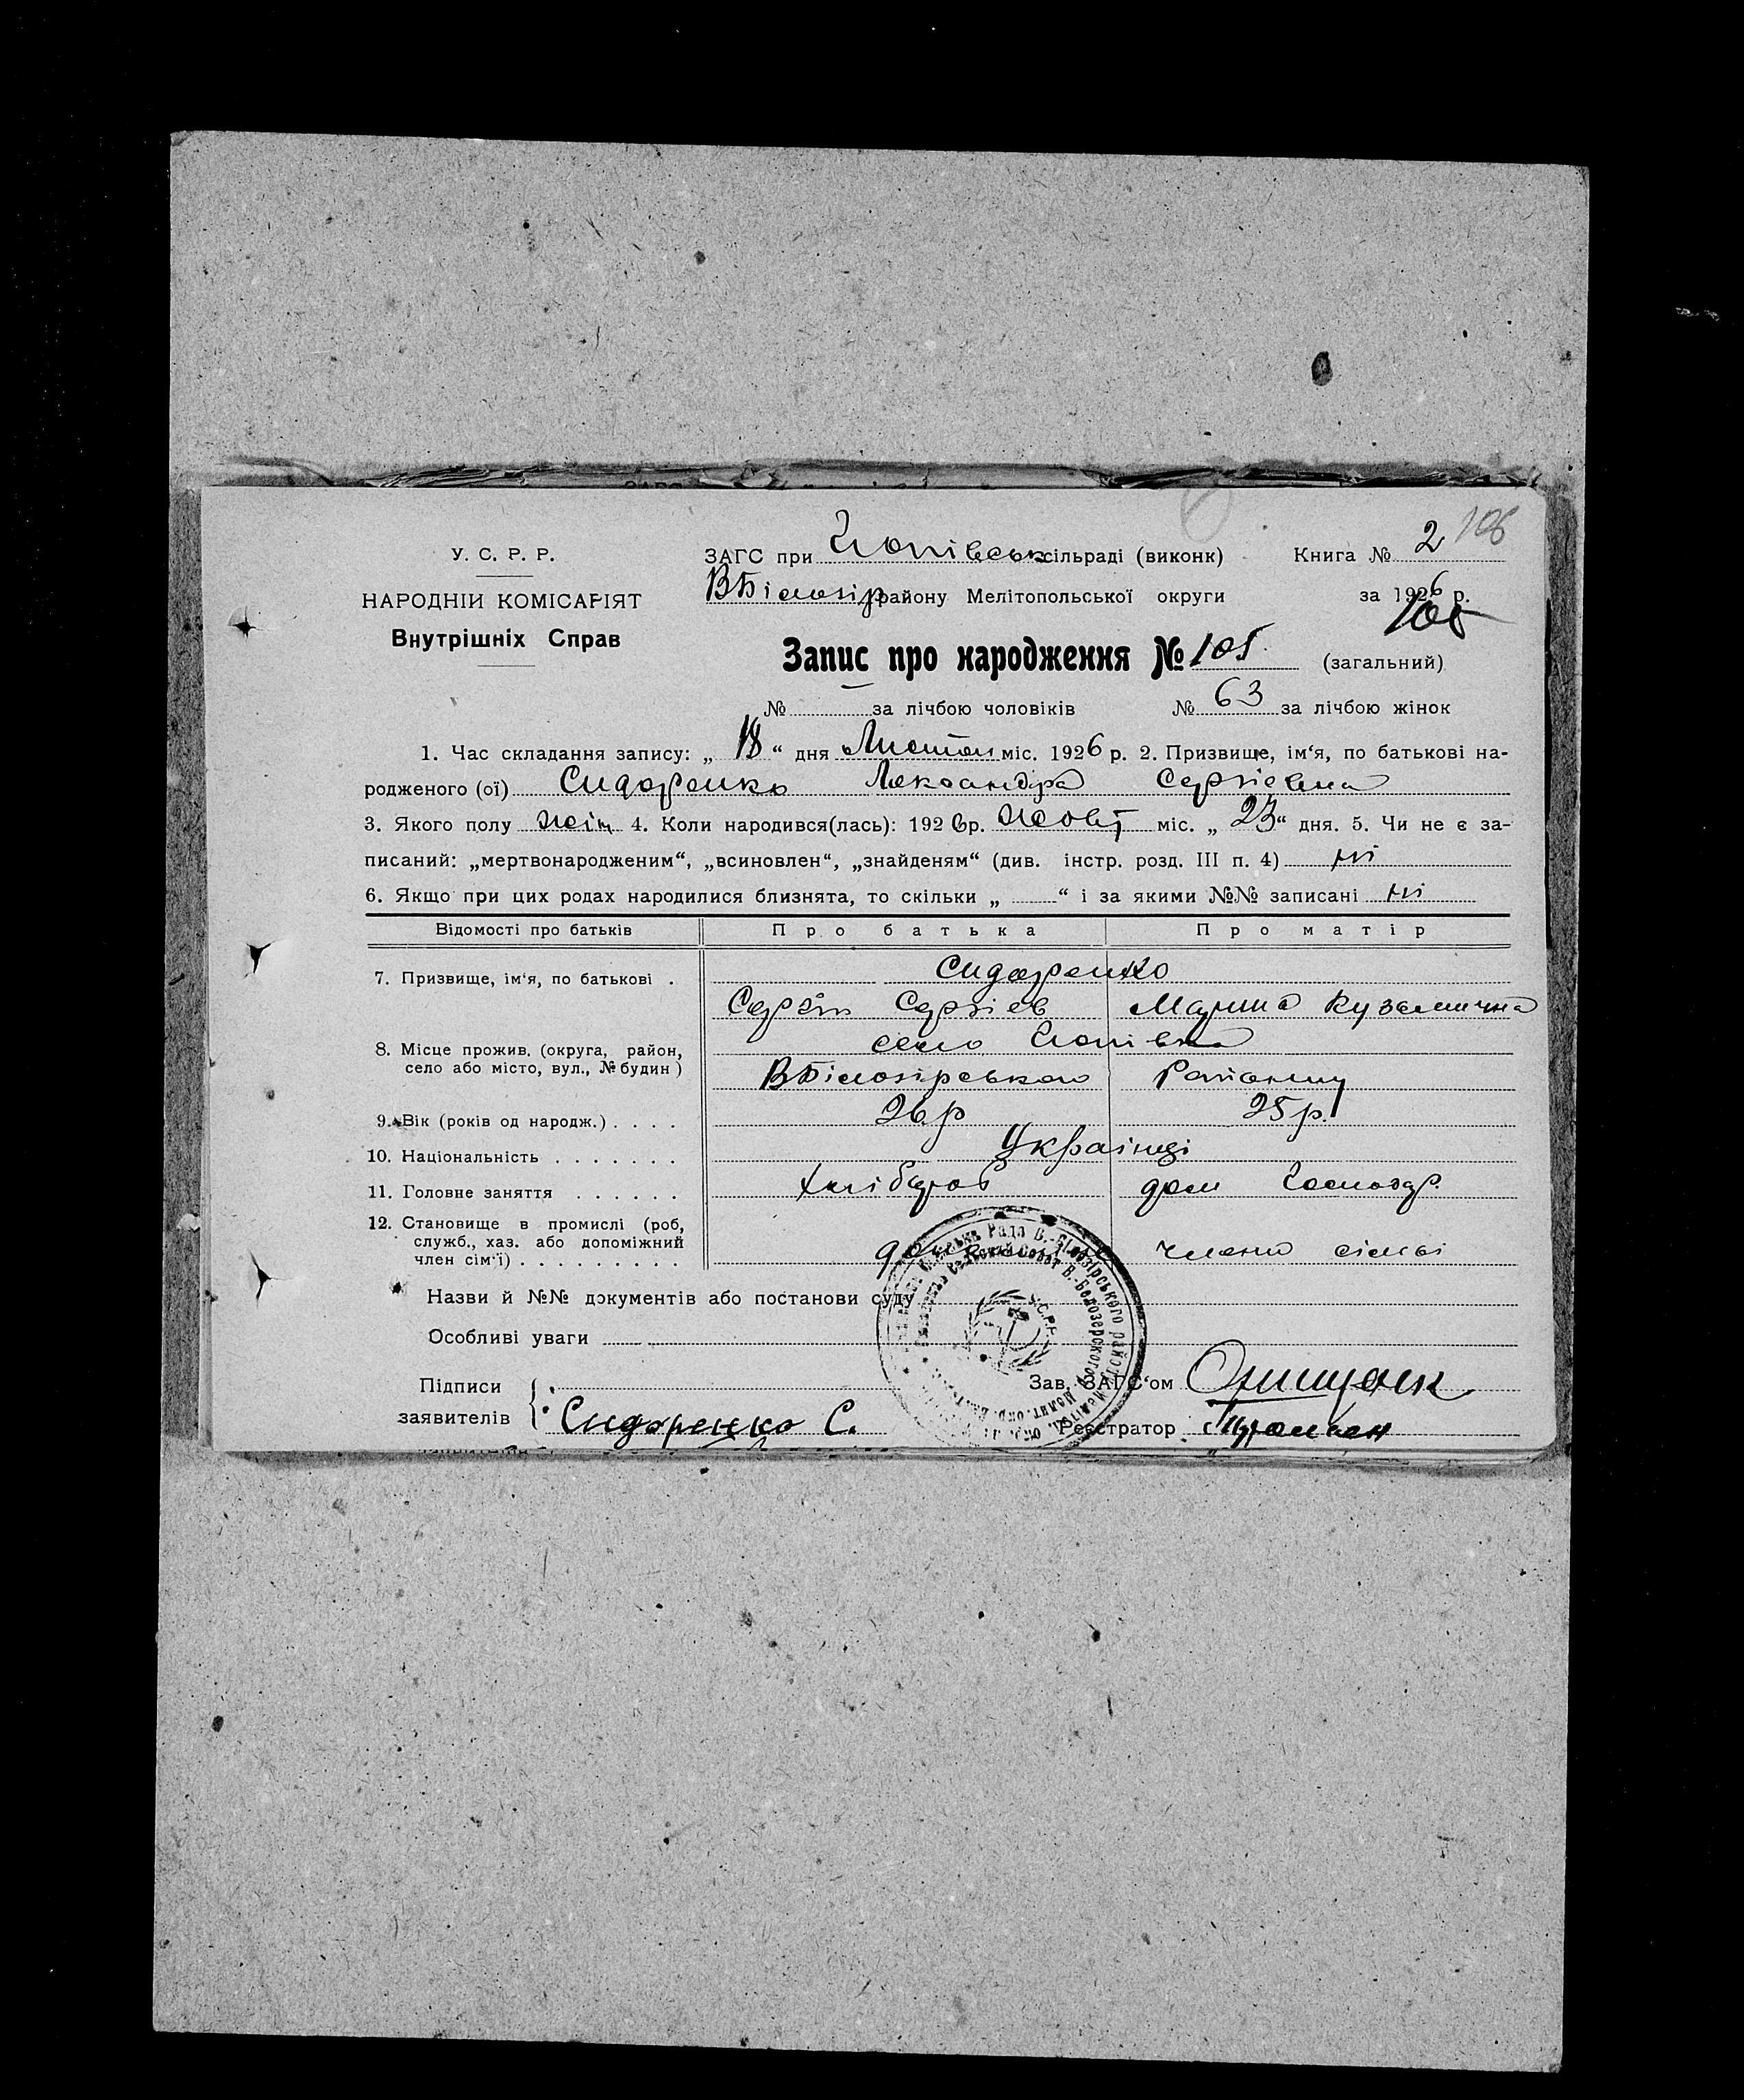 106
У. С. Р. Р.
ЗАГС при сільраді (виконк)
Книга № 2
НАРОДНІЙ КОМІСАРІЯТ
ВБілозір району Мелітопольської округи
за 1926 р.
Внутрішніх Справ
Запис про народження № 105 (загальний)
№ за лічбою чоловіків № 63 за лічбою жінок
1. Час складання запису: „ 18 “ дня Листоп міс. 1926 р. 2. Призвище, ім‘я, по батькові на-
родженого (ої) Сидоренко Лександра Сергіевна
3. Якого полу жін 4. Коли народився(лась): 1926 р. Жовт міс. „ 23 “ дня. 5. Чи не є за-
писаний: „мертвонародженим“, „всиновлен“, „знайденям“ (див. інстр. розд. III п. 4) ні
6. Якщо при цих родах народилися близнята, то скільки „ “ і за якими №№ записані ні
Відомості про батьків
Про батька
Про матір
7. Призвище, ім‘я, по батькові .
Сидоренко
Сергій Сергіев
Марина Кузьмична
8. Місце прожив. (округа, район,
село або місто, вул., № будин )
село
ВБілозірського Району
9. Вік (років од народж.) . . . .
26 р
25 р.
10. Національність . . . . . . .
Українці
11. Головне заняття . . . . . .
хлібороб
дом господр.
12. Становище в промислі (роб,
служб., хаз. або допоміжний
член сім‘ї) . . . . . . . . .
члено сімьі
Назви й №№ документів або постанови суду
Особливі уваги
Підписи
заявителів
Сидоренко С.
Зав. ЗАГС‘ом
Реєстратор